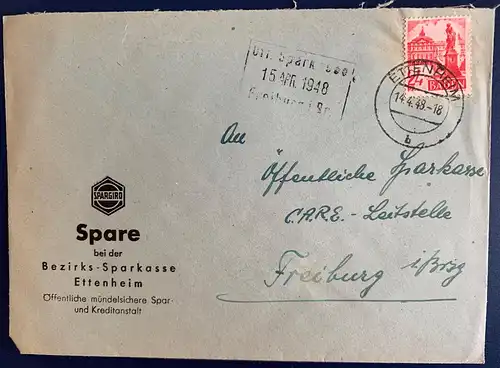 Öff. Sparkasse
15 APR. 1948
Freiburg i. Br.
24 BADEN
ETTENHEIM
14.4.48.-18
b
An
Öffentliche Sparkasse
C.A.R.E.- Leitstelle
Freiburg i/Brsg
SPARGIRO
Spare
bei der
Bezirks-Sparkasse
Ettenheim
Öffentliche mündelsichere Spar-
und Kreditanstalt